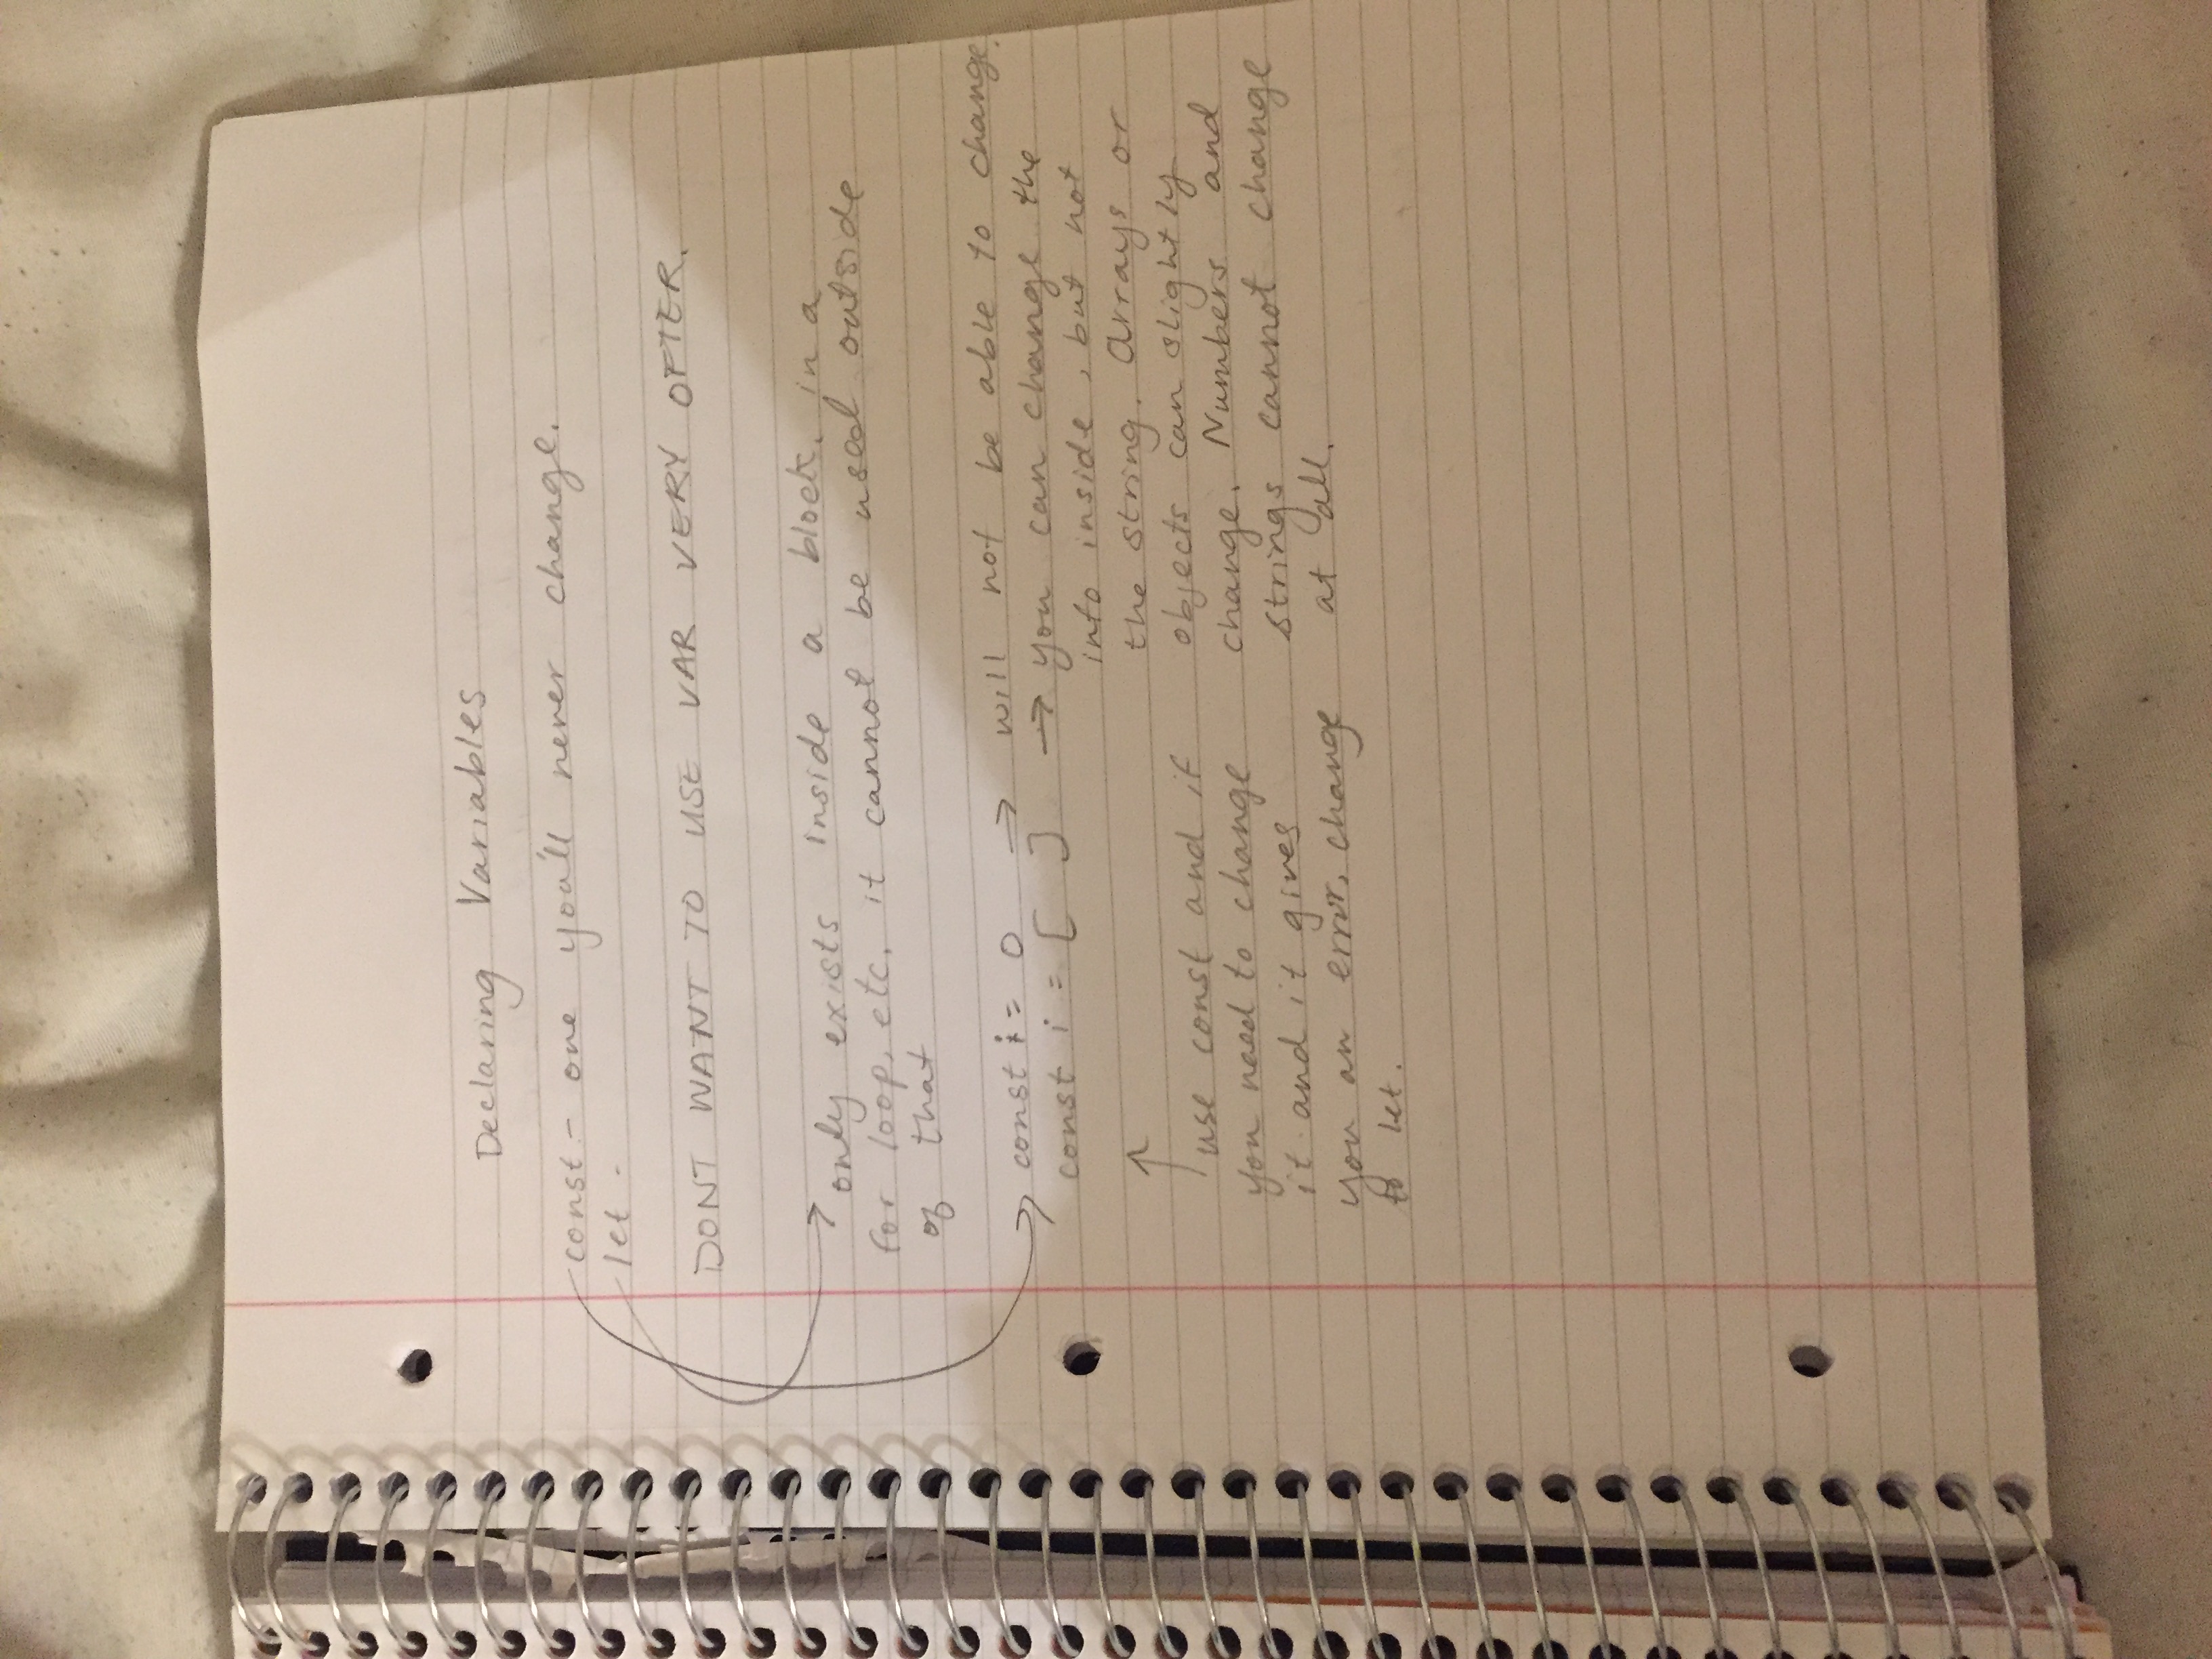 Declaring Variables
const - one you'll never change.
let -
DONT WANT TO USE VAR VERY OFTER.
only exists inside a block. in a
for loop, etc. it cannot be used outside
of that
const i = 0 → will not be able to change.
const i = [ ] → you can change the
into inside, but not
the string. Arrays or
objects can slightly
change. Numbers and
strings cannot change
at all.
↑
use const and if
you need to change
it and it gives
you an error, change
to let.